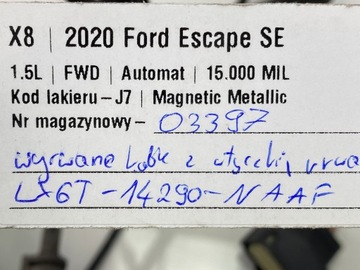 X8 | 2020 Ford Escape SE
1.5L | FWD | Automat | 15.000 MIL
Kod lakieru – J7 | Magnetic Metallic
Nr magazynowy – 03397
wyrwane kable z wtyczki,
LX6T-14290-NAAF